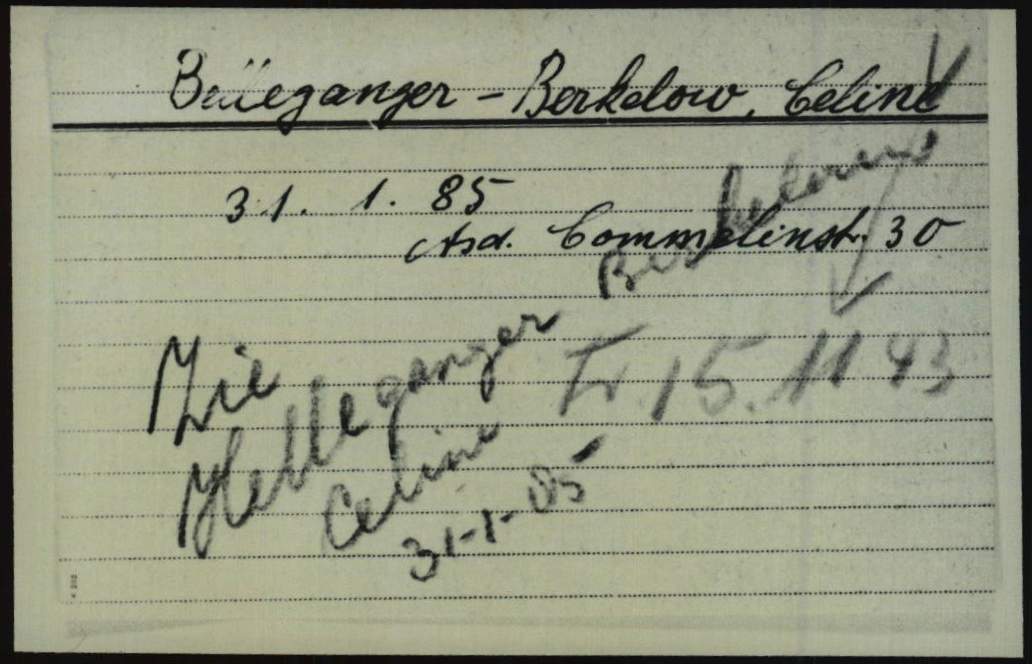 Bülleganger - Berkelouw, Celine
31. 1. 85
Asd. Commelinstr. 30
Berkelouw
Zie
Helleganger
Tr. 15. 11 43
Celine
31-1-85
K 202